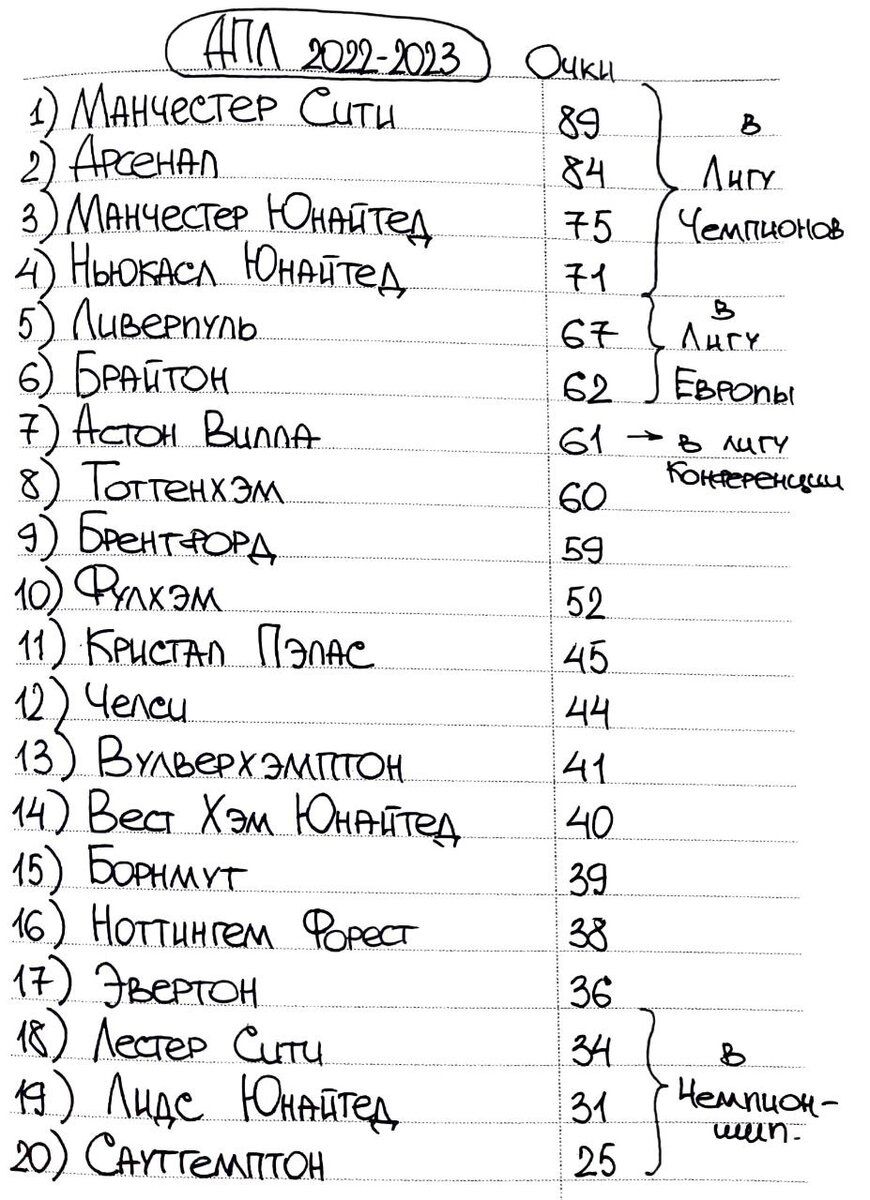 АПЛ 2022-2023 Очки
1) Манчестер Сити 89 в
2) Арсенал 84 Лигу
3) Манчестер Юнайтед 75 Чемпионов
4) Ньюкасл Юнайтед 71
5) Ливерпуль 67 в Лигу
6) Брайтон 62 Европы
7) Астон Вилла 61 → в лигу
Конференции
8) Тоттенхэм 60
9) Брентфорд 59
10) Фулхэм 52
11) Кристал Пэлас 45
12) Челси 44
13) Вулверхэмптон 41
14) Вест Хэм Юнайтед 40
15) Борнмут 39
16) Ноттингем Форест 38
17) Эвертон 36
18) Лестер Сити 34 в
19) Лидс Юнайтед 31 Чемпион-
шип.
20) Саутгемптон 25